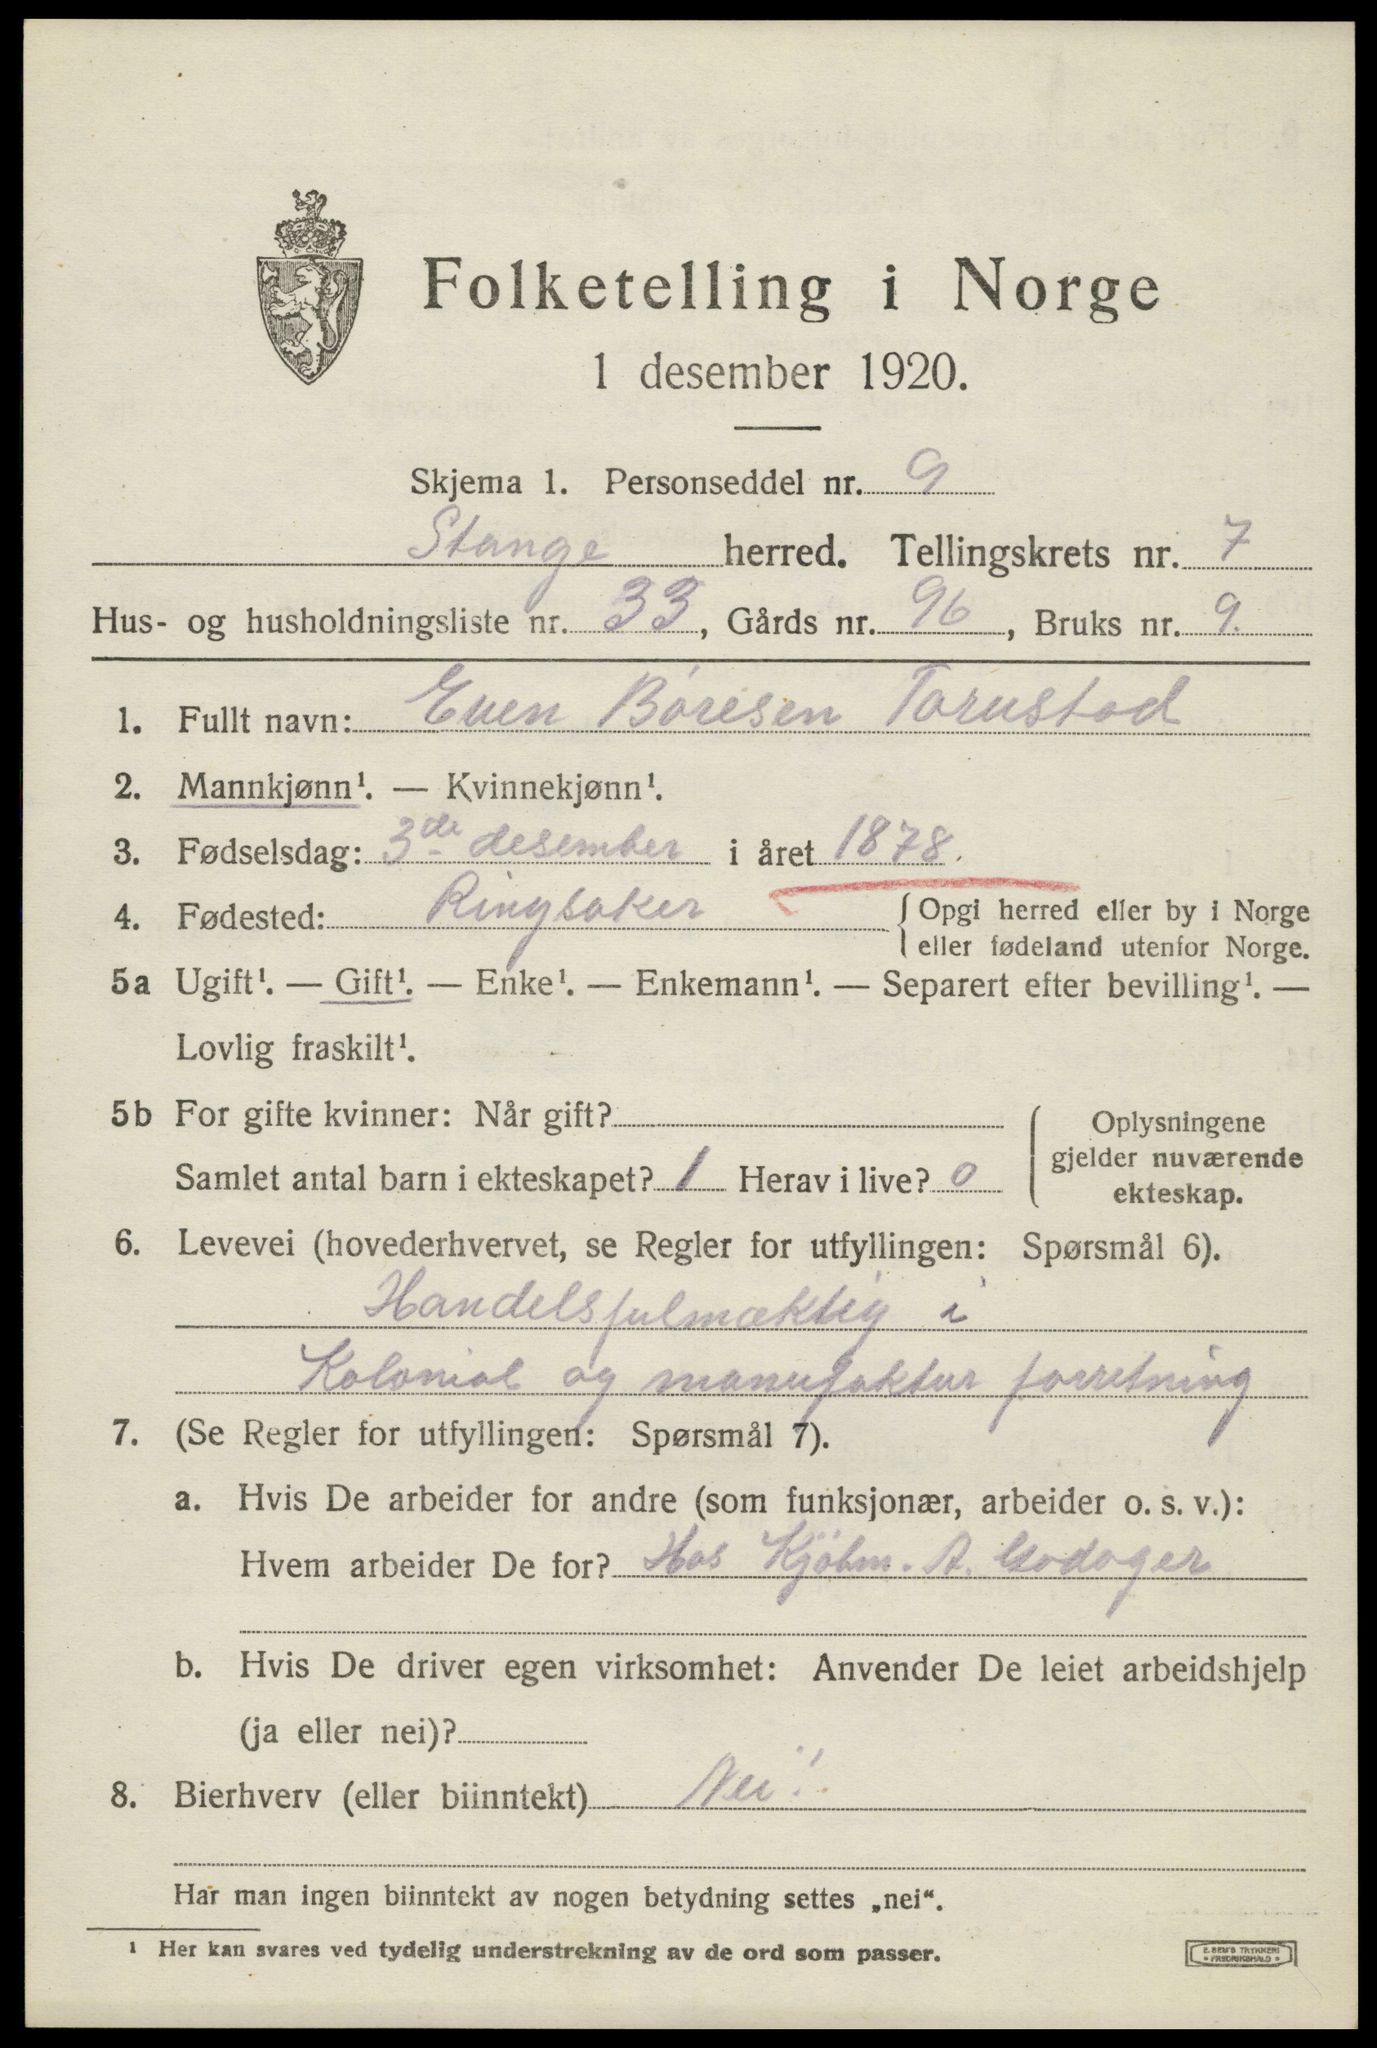 Folketelling i Norge
1 desember 1920.
Skjema 1. Personseddel nr. 9
Stange herred. Tellingskrets nr. 7
Hus- og husholdningsliste nr. 33, Gårds nr. 96, Bruks nr. 9.
1. Fullt navn: Even Böresen Torustad
2. Mannkjønn¹. — Kvinnekjønn¹.
3. Fødselsdag: 3de desember i året 1878.
4. Fødested: Ringsaker { Opgi herred eller by i Norge
eller fødeland utenfor Norge.
5a Ugift¹. — Gift¹. — Enke¹. — Enkemann¹. — Separert efter bevilling¹. —
Lovlig fraskilt¹.
5b For gifte kvinner: Når gift?
Samlet antal barn i ekteskapet? 1 Herav i live? 0
Oplysningene
gjelder nuværende
ekteskap.
6. Levevei (hovederhvervet, se Regler for utfyllingen: Spørsmål 6).
Handelsfulmæktig i
Kolonial og manufaktur forretning
7. (Se Regler for utfyllingen: Spørsmål 7).
a. Hvis De arbeider for andre (som funksjonær, arbeider o. s. v.):
Hvem arbeider De for? Hos Kjöbm. A. Godager
b. Hvis De driver egen virksomhet: Anvender De leiet arbeidshjelp
(ja eller nei)?
8. Bierhverv (eller biinntekt) Nei!
Har man ingen biinntekt av nogen betydning settes „nei“.
¹ Her kan svares ved tydelig understrekning av de ord som passer.
E. SEM'S TRYKKERI
FREDRIKSHALD